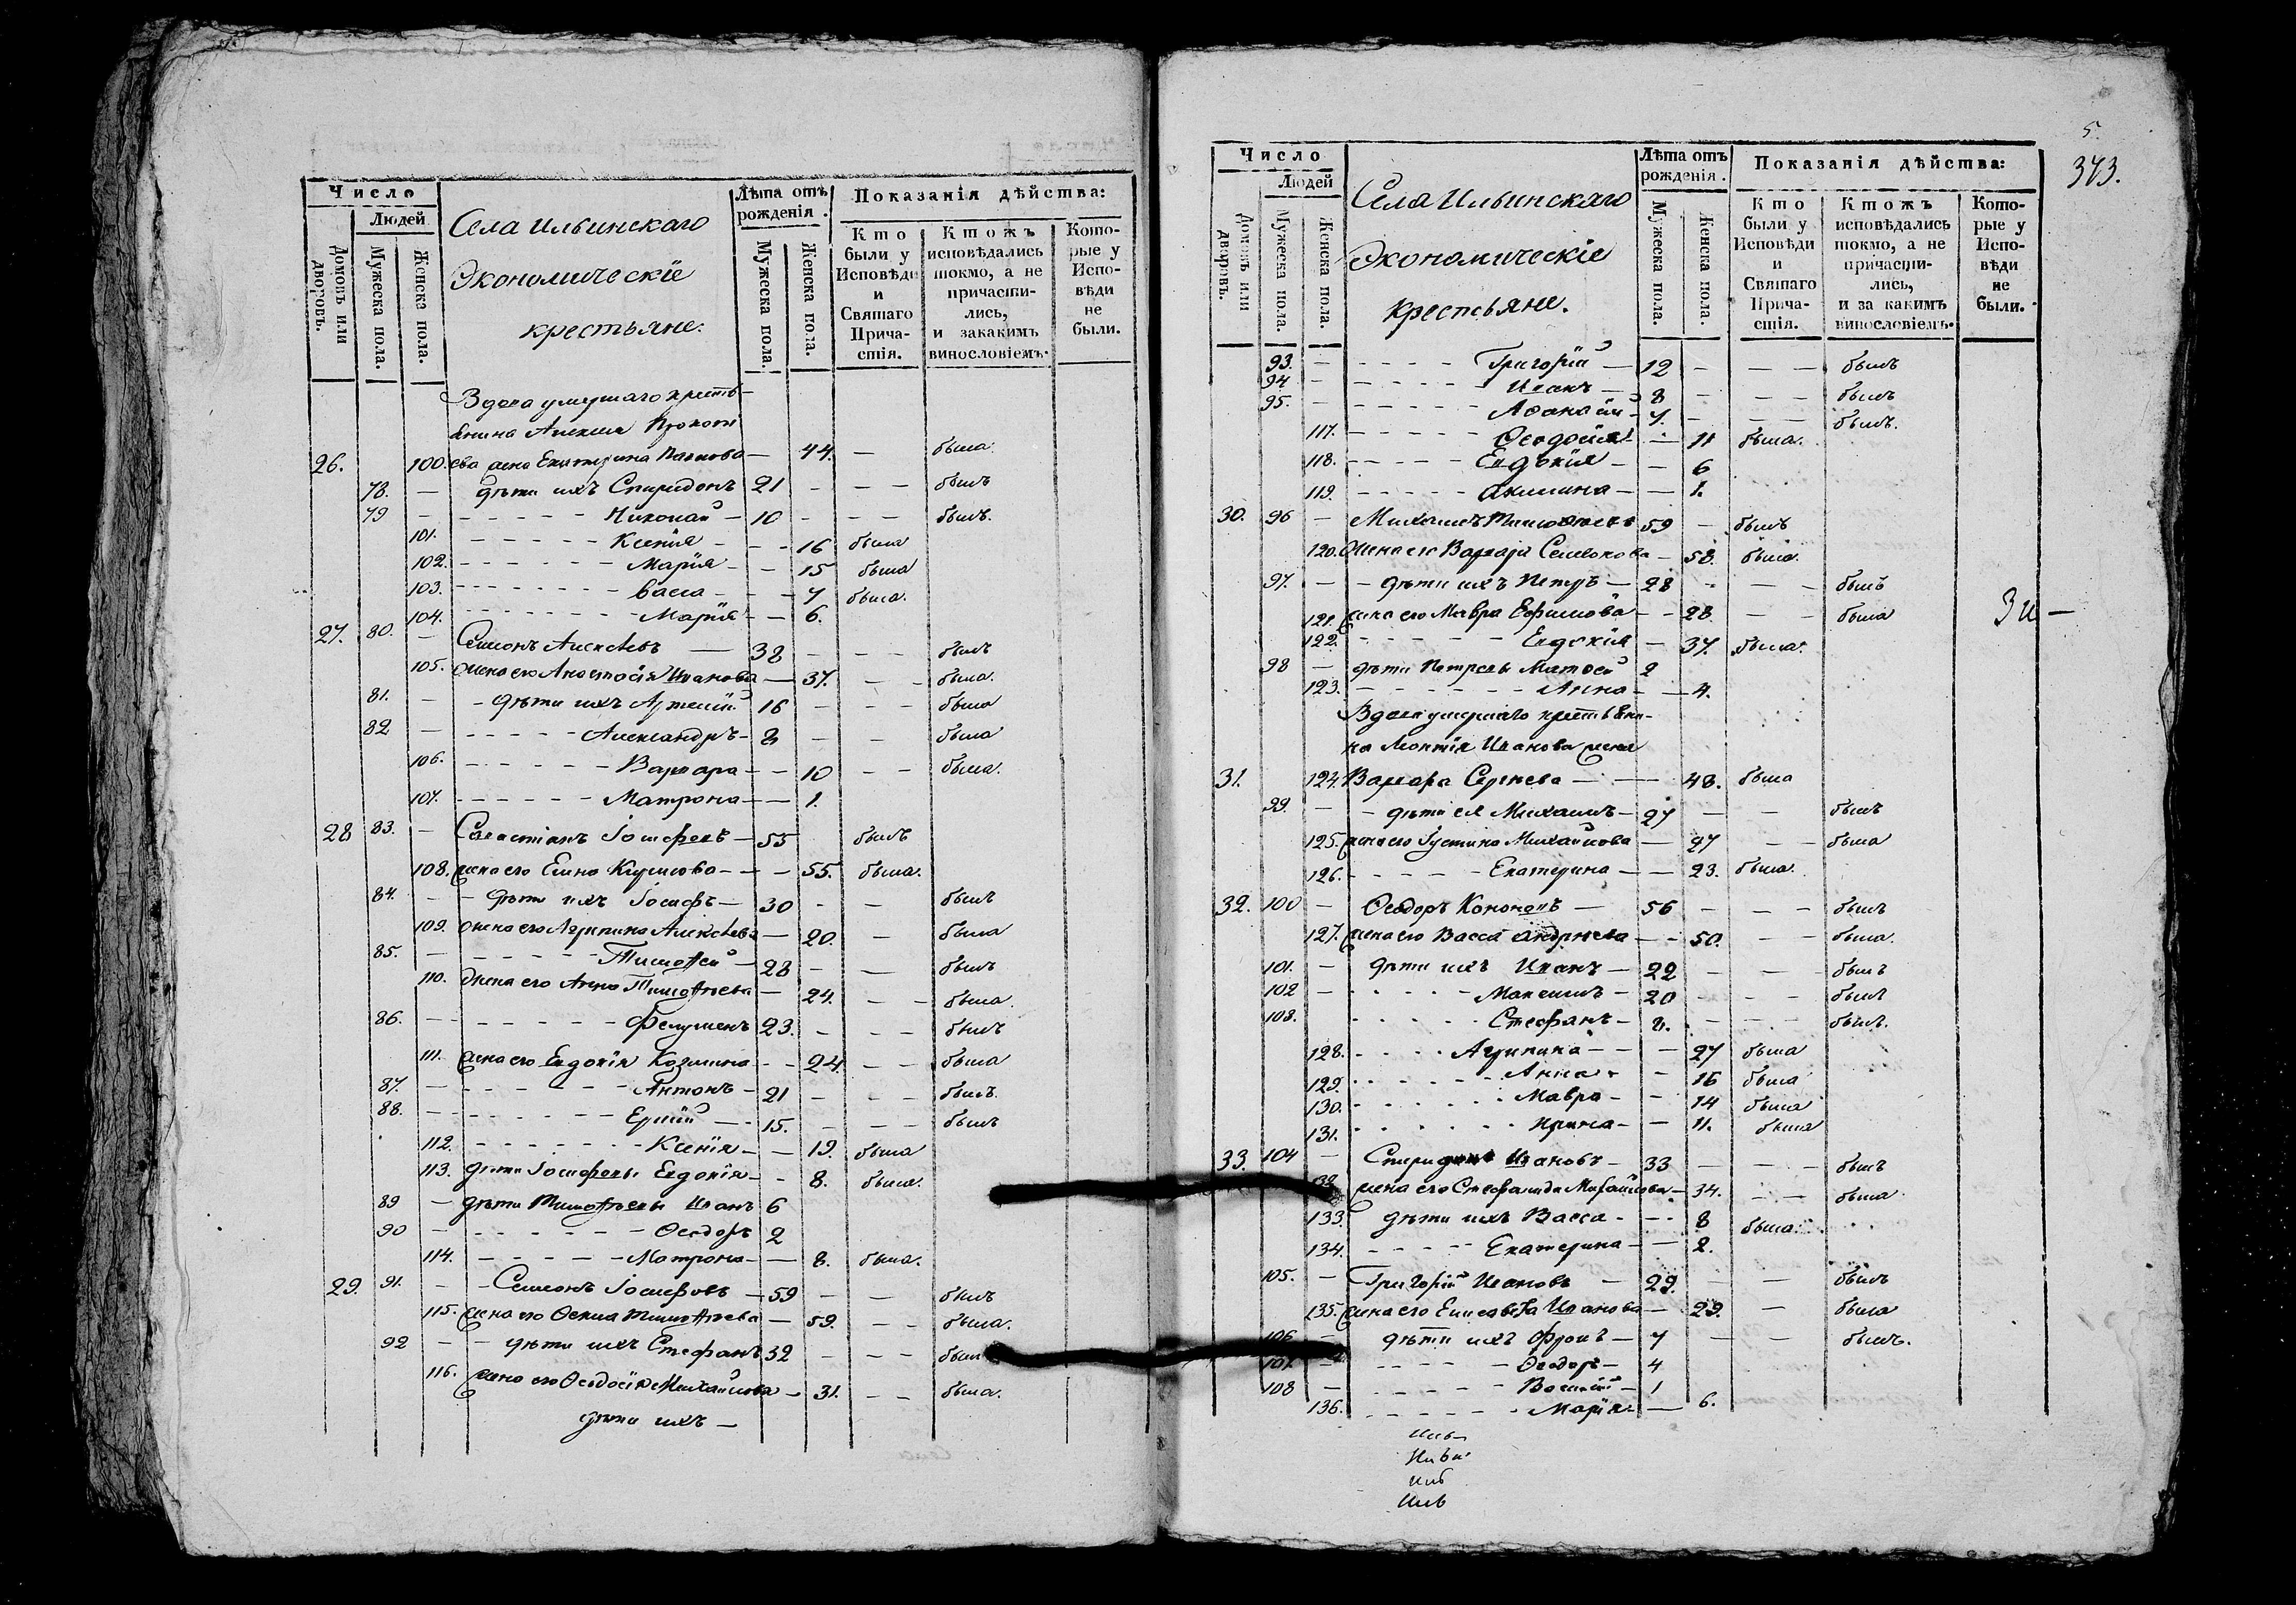 Число
Людей
Домовъ или дворовъ.
Мужеска пола.
Женска пола.
Села Ильинскаго
Экономическіе
крестьяне.
Лѣта отъ рожденія.
Мужеска пола.
Женска пола.
Показанія дѣйства:
Кто были у Исповѣди и Святаго Причастія.
Ктожъ исповѣдались токмо, а не причастились, и закакимъ винословіемъ.
Которые у Исповѣди не были.
Вдова умершаго кресть-
янина Алексея Прокофі
26. 100. ева жена Екатерина Павлова — 44. — была.
78. — дѣти ихъ Спиридонъ 21 - — — былъ
79 — Николай — 10 - - — былъ.
101. Ксенія - - - 16 была
102. Марія - - 15 была
103. Васса - - - 7 была.
104. Марія - — 6.
27. 80. — Семионъ Алексѣевъ — 38 - - - былъ
105. жена его Анастасія Иванова — 37. - - была.
81. — - дѣти ихъ Артемій 16 - - - была
82 — Александръ - 8 - - была
106. Варвара - - 10 - - была.
107. Матрона - — 1.
28 83. — Савастіанъ Іосифовъ — 55 былъ
108. жена его Елена Кирилова - - - 55. была.
84. - - дѣти ихъ Іосифъ — 30 - - былъ
109. жена его Агрипина Алексѣева — 20. - была
85. — Тимофей — 28 - — былъ
110. жена его Анна Тимофѣева — 24. - - была.
86. — Филимонъ 23. - - - былъ
111. жена его Евдокія Козмина - - 24. - - была
87. — Антонъ - 21 - - - былъ.
88. — Ермій — 15. - - - былъ
112. Ксенія - — 19. была
113. дѣти Іосифовы Евдокія - - 8. была.
89 — дѣти Тимофѣевы Иванъ 6
90 — Ѳеодоръ 2
114. Матрона - — 8. была.
29. 91. - - Семионъ Іосифовъ — 59 - - былъ
115. жена его Ѳекла Тимофѣева — 59. - - была.
92 — - дѣти ихъ Стефанъ 32 - - - былъ
116. жена его Ѳеодосія Михайлова — 31. - - была.
дѣти ихъ —
5.
373.
Число
Людей
Домовъ или дворовъ.
Мужеска пола.
Женска пола.
Села Ильинскаго
Экономическіе
крестьяне.
Лѣта отъ рожденія.
Мужеска пола.
Женска пола.
Показанія дѣйства:
Кто были у Исповѣди и Святаго Причастія.
Ктожъ исповѣдались токмо, а не причастились, и за какимъ винословіемъ.
Которые у Исповѣди не были.
93. — Григорій — 12 - — - былъ
94 — Иванъ — 8 - - - былъ
95. — Афанасій - 7. - — - былъ.
117. Ѳеодосія — 11 была.
118. Евдокія - - 6
119. Акилина - — 1.
30. 96 — Михаилъ Тимофѣевъ 59 - былъ
120. Жена его Варвара Семионова - 58. была.
97. — - дѣти ихъ Петръ — 28 - - - былъ
121. жена его Мавра Ефимова - - 28. - - была
122. Евдокія — 37. была.
98 — дѣти Петровы Матвей 2
123. Анна - — 4.
Вдова умершаго крестьяни-
на Леонтія Иванова жена
31. 124. Варвара Сергѣева — — 48. была
99. — - дѣти ея Михаилъ - 27 - - былъ
125. жена его Іустина Михайлова — 27 - - была
126. Екатерина - — 23. была.
32. 100 — Ѳеодоръ Кононовъ — 56 - - - былъ
127. жена его Васса Андреева - - 50. - - была.
101. — дѣти ихъ Иванъ — 22 - - - былъ
102 — Максимъ - 20 - - - былъ
103. Стефанъ - 8. - - - былъ.
128. Агрипина - - — 27 была
129. Анна - - 16 была
130. Мавра - - 14 была
131. Ирина - — 11. была
33. 104 — Спиридонъ Ивановъ - 33 - - - былъ
132. жена его Стефанида Михайлова - 34. - - была
133. дѣти ихъ Васса - - - 8 была.
134. Екатерина - — 2.
105. — Григорій Ивановъ — 29. - - былъ
135. жена его Елисавета Иванова — 29. - была
106 — дѣти ихъ Фролъ — 7 - - былъ.
107. — Ѳеодоръ — 4
108 — Василій — 1
136. Марія - — 6.